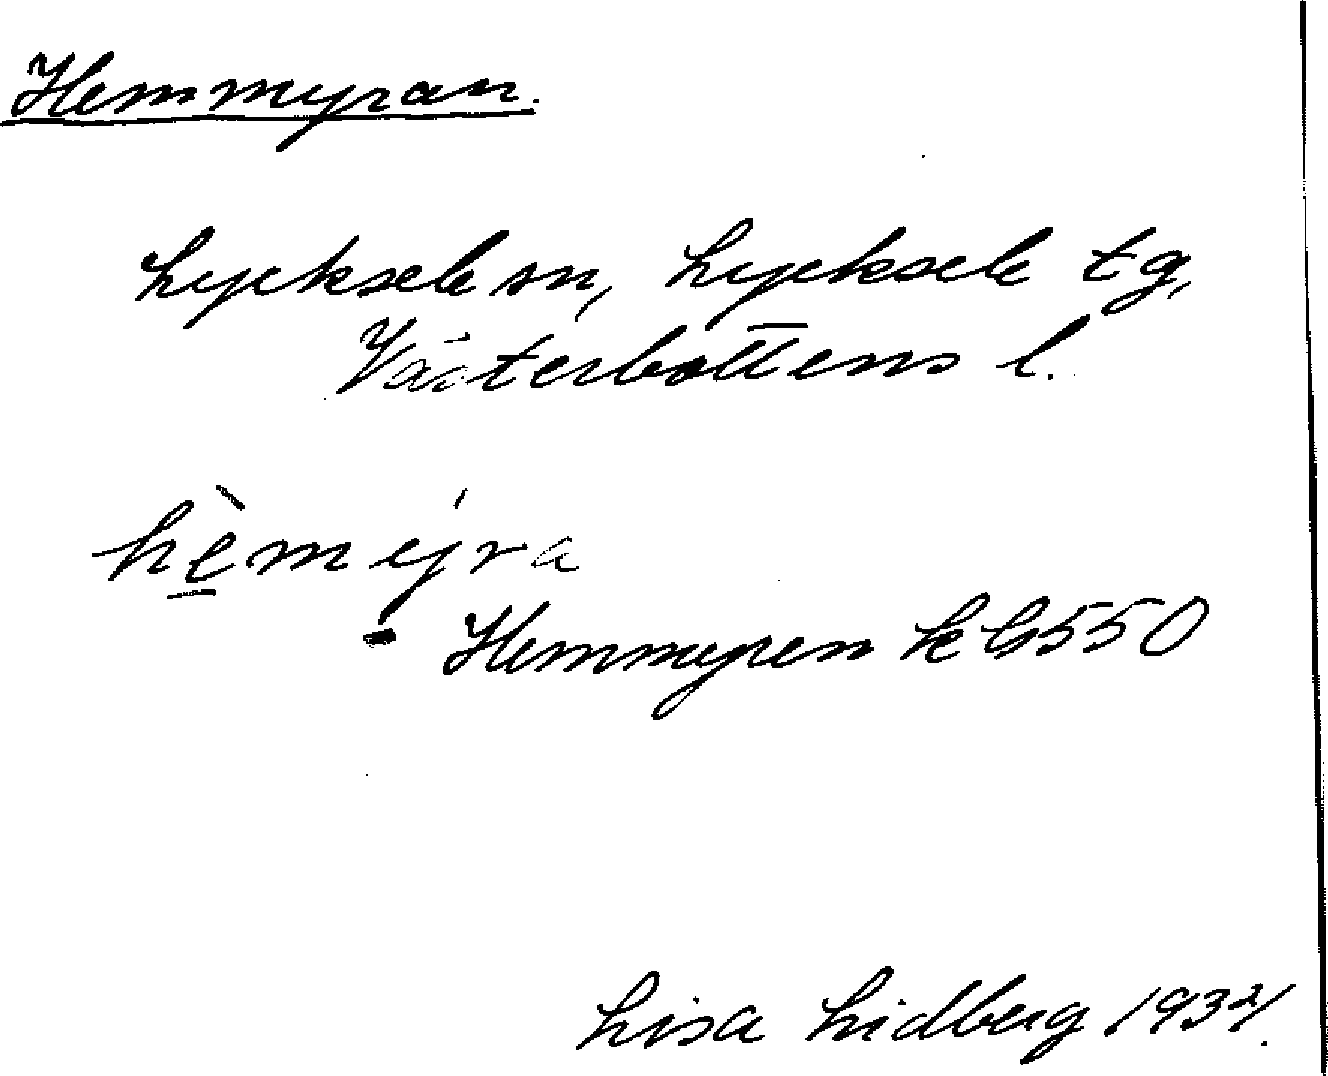 Hemmyran.
Lycksele sn, Lycksele tg,
Västerbottens l.
hè̱mýra
- Hemmyren k 6550
Lisa Lidberg 1934.